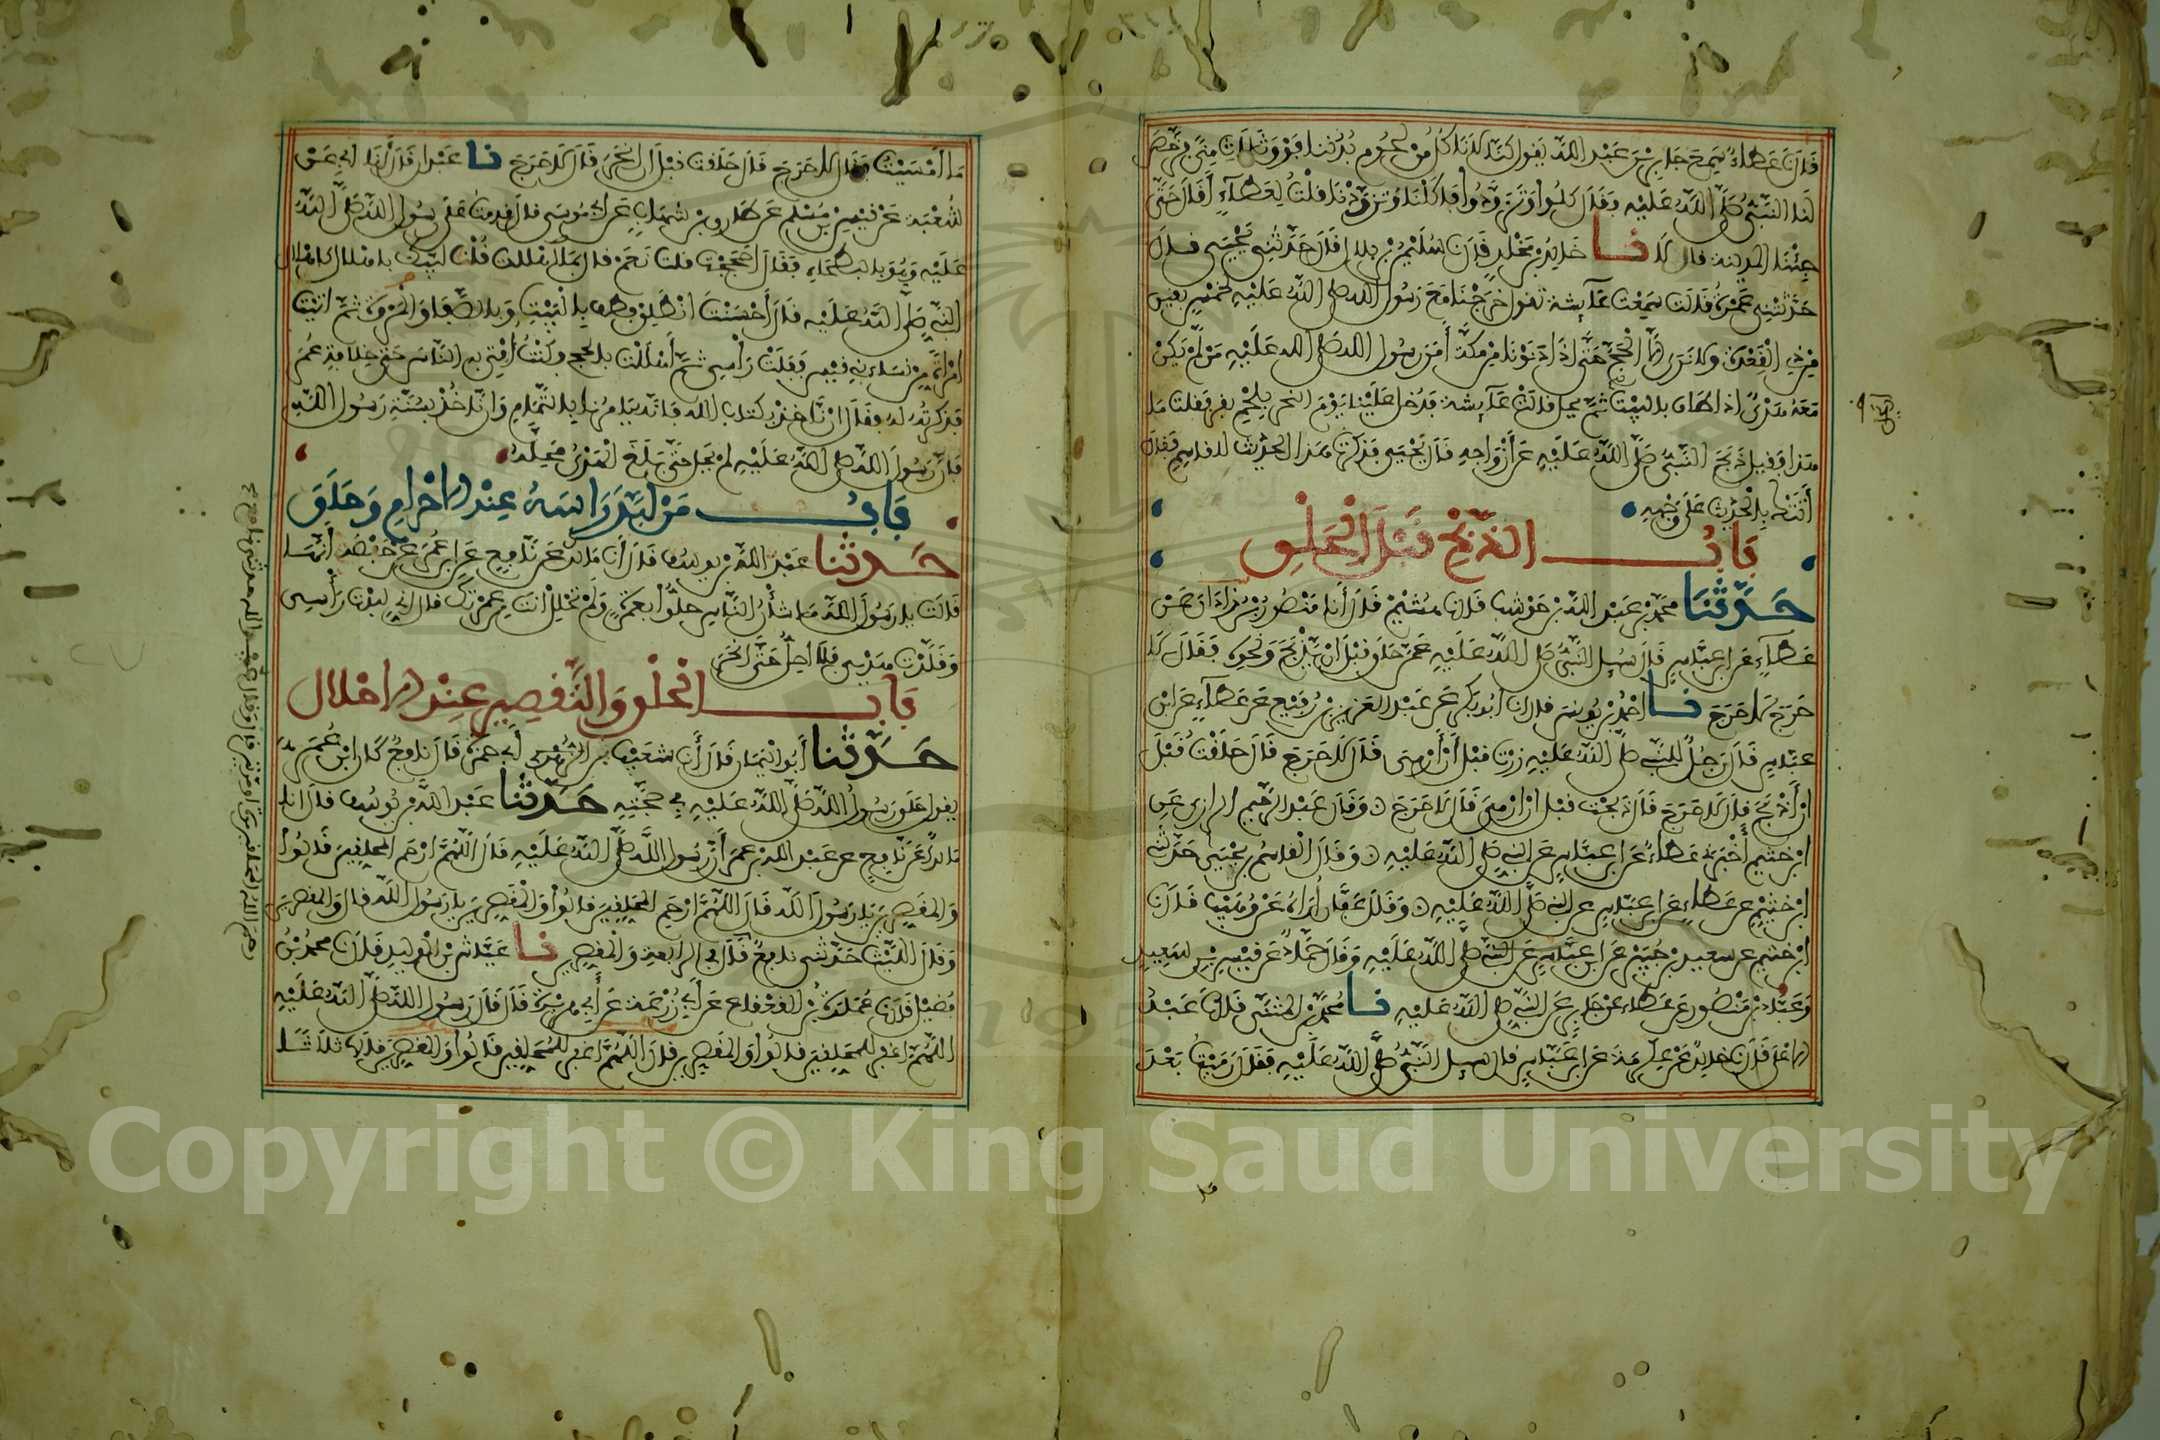 قال نا عطاء سمع جابر بن عبد الله يقول كنا لا ناكل من لحوم بدننا فوق ثلاث منى فرخص
لنا النبي صلى الله عليه فقال كلوا وتزودوا فاكلنا وتزودنا قلت لعطاء أقال حتى
جئنا المدينة قال لا نا خالد بن مخلد قال نا سليمن بن بلال قال حدثني يحيى قال
حدثتني عمرة قالت سمعت عائشة تقول خرجنا مع رسول الله صلى الله عليه لخمس بقين
من ذي القعدة ولا نرى إلا الحج حتى إذا دنونا من مكة أمر رسول الله صلى الله عليه من لم يكن
معه هدي اذا طاف بالبيت ثم يحل قالت عائشة فدخل علينا يوم النحر بلحم بقر فقلت ما
هذا فقيل ذبح النبي صلى الله عليه عن أزواجه قال يحيى فذكرت هذا الحديث للقاسم فقال
أتتك بالحديث على وجهه
باب الذبح قبل الحلق
حدثنا محمد بن عبد الله بن حوشب قال نا هشيم قال أنا منصور بن زاذان عن
عطاء عن ابن عباس قال سيل النبي صلى الله عليه عمن حلق قبل ان يذبح ونحوه فقال لا
حرج لا حرج نا احمد بن يونس قال انا ابو بكر عن عبد العزيز بن رفيع عن عطاء عن ابن
عباس قال رجل للنبي صلى الله عليه زرت قبل أن أرمي قال لا حرج قال حلقت قبل
ان أذبح قال لا حرج قال ذبحت قبل ان ارمي قال لا حرج وقال عبد الرحيم الرازي عن
ابن خثيم أخبرني عطاء عن ابن عباس عن النبي صلى الله عليه وقال القاسم بن يحيى حدثني
ابن خثيم عن عطاء عن ابن عباس عن النبي صلى الله عليه وقال عفان أراه عن وهيب قال نا
ابن خثيم عن سعيد بن جبير عن ابن عباس عن النبي صلى الله عليه وقال حماد عن قيس بن سعيد
وعباد بن منصور عن عطاء عن جابر عن النبي صلى الله عليه نا محمد بن المثنى قال نا عبد
الاعلى قال نا خالد عن عكرمة عن ابن عباس قال سيل النبي صلى الله عليه فقال رميت بعد
ما أمسيت فقال لا حرج قال حلقت قبل ان انحر قال لا حرج نا عبدان قال أنا ابي عن
شعبة عن قيس بن مسلم عن طارق بن شهاب عن ابي موسى قال قدمت على رسول الله صلى الله
عليه وهو بالبطحاء فقال أحججت قلت نعم قال بما أهللت قلت لبيك باهلال كاهلال
النبي صلى الله عليه قال أحسنت انطلق فطف بالبيت وبالصفا والمروة ثم اتيت
امرأة من نساء بني قيس ففلت رأسي ثم أهللت بالحج فكنت أفتي به الناس حتى خلافة عمر
فذكرته له فقال ان ناخذ بكتاب الله فانه يامرنا بالتمام وان ناخذ بسنة رسول الله
فان رسول الله صلى الله عليه لم يحل حتى بلغ الهدي محله
باب من لبد راسه عند الاحرام وحلق
حدثنا عبد الله بن يوسف قال أنا مالك عن نافع عن ابن عمر عن حفصة أنها
قالت يا رسول الله ما شأن الناس حلوا بعمرة ولم تحلل انت من عمرتك قال اني لبدت رأسي
وقلدت هديي فلا احل حتى انحر
باب الحلق والتقصير عند الاحلال
حدثنا أبو اليمان قال أنا شعيب بن ابي حمزة قال نافع كان ابن عمر
يقول حلق رسول الله صلى الله عليه في حجته حدثنا عبد الله بن يوسف قال انا
مالك عن نافع عن عبد الله بن عمر أن رسول الله صلى الله عليه قال اللهم ارحم المحلقين قالوا
والمقصرين يا رسول الله قال اللهم ارحم المحلقين قالوا والمقصرين يا رسول الله قال والمقصرين
وقال الليث حدثني نافع قال في الرابعة والمقصرين نا عياش بن الوليد قال نا محمد بن
فضيل قال نا عمارة بن القعقاع عن أبي زرعة عن أبي هريرة قال قال رسول الله صلى الله عليه
اللهم اغفر للمحلقين قالوا والمقصرين قال اللهم اغفر للمحلقين قالوا والمقصرين قالها ثلاثا
Copyright © King Saud University